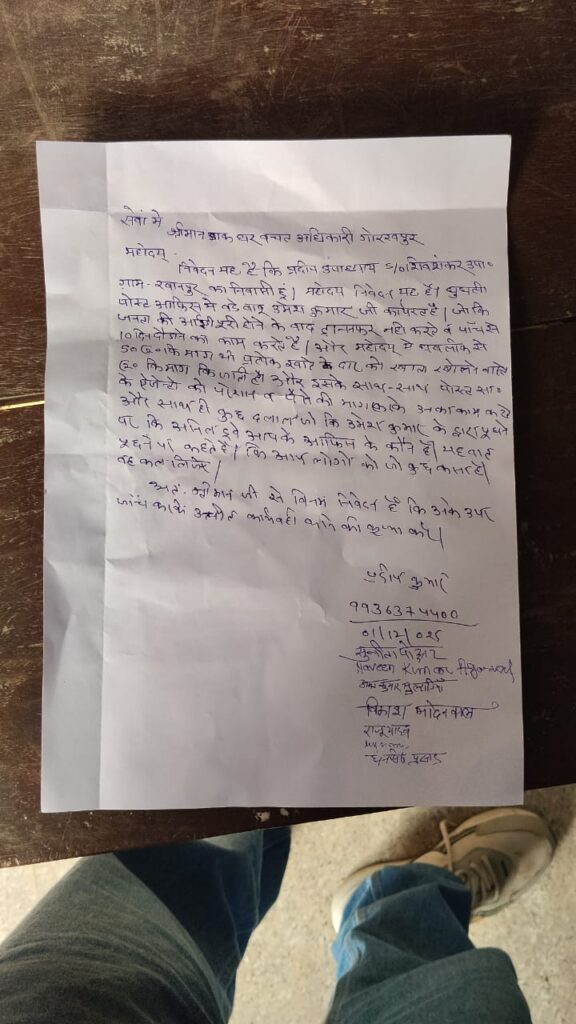 सेवां मे
श्रीमान डाक घर बचत अधिकारी गोरखपुर
महोदय्
निवेदन यह है कि प्रदीप उपाध्याय S/O शिवशंकर उपा०
ग्राम- का निवासी हूं। महोदय निवेदन यह है। घुघली
पोस्ट आफिस मे बडे बाबू उमेश कुमार जी कार्यरत है। जो कि
जनता की पूरी होने के बाद ट्रान्सफर नही करते व पाँच से
10 दिन दौडाने का काम करते है। और महोदय मे पबलीक से
कि माग की प्रत्येक खाते दार को खाता खोलने
कि माग कि जाती है। और इसके साथ-साथ पोस्ट आ०
के ऐजेन्टो को परेशान व पैसे की माग करके काम करते
और साथ ही कुछ दलाल जो कि उमेश कुमार के द्वारा पूछने
पर कि अनिल दूबे आपके आफिस के कौन है। यह बात
पूछने पर कहते है। कि आप लोगो को जो कुछ करना है।
वह कर लिजिए।
अतः श्रीमान जी से विनम्र निवेदन है कि उपर
जांच करके उचीत कार्यवही करने की कृप्या करें।
प्रदीप कुमार
9936374400
01/12/025
सुनीता
Naveen Kumar
विकाश
राजू यादव
प्रसाद